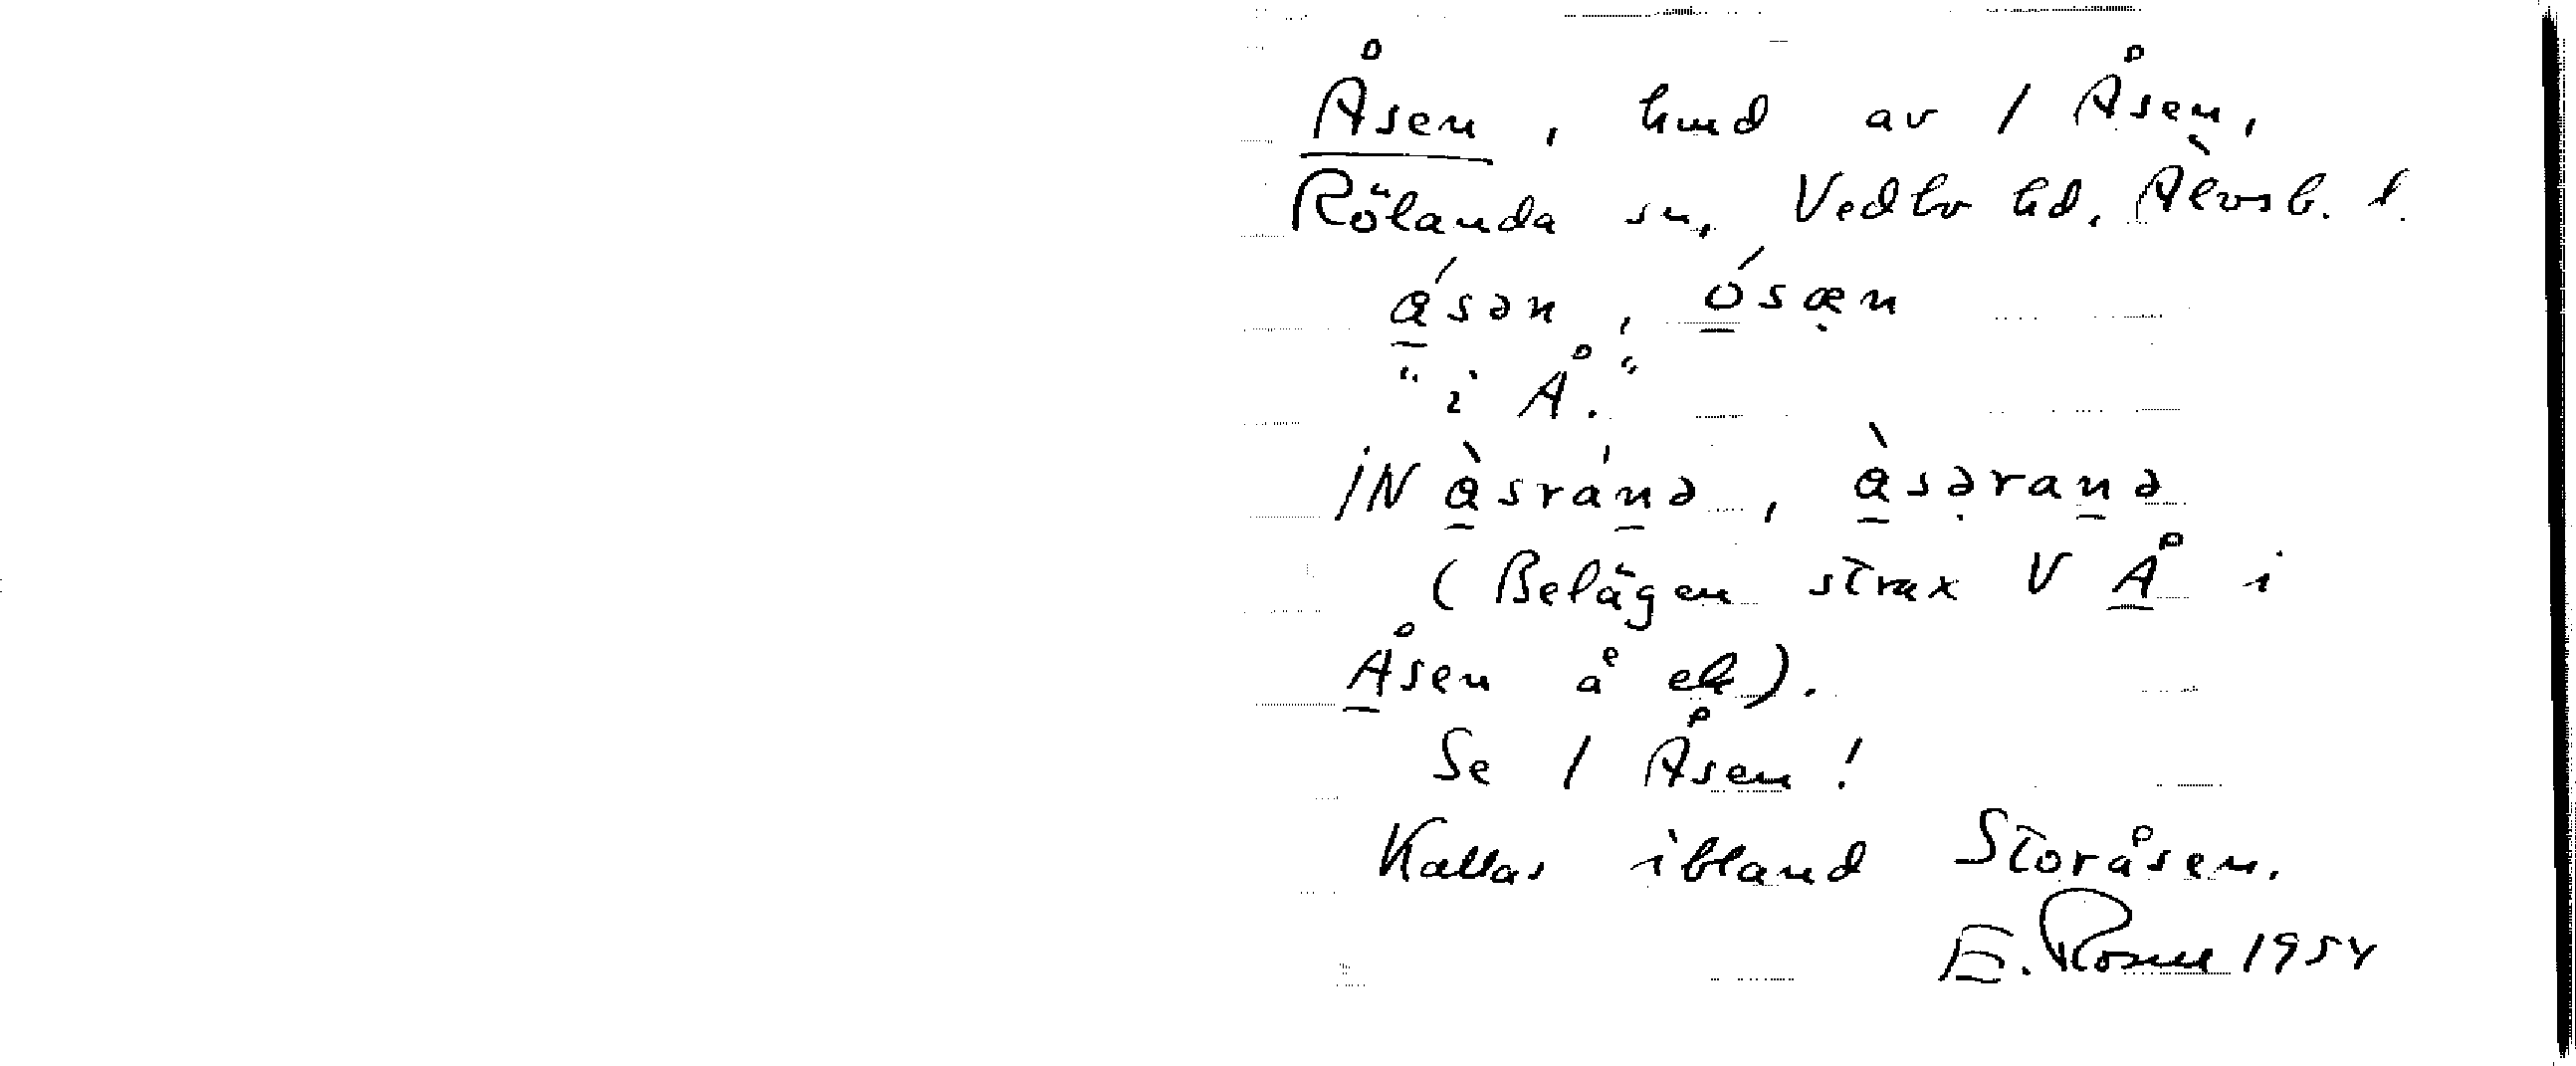 Åsen, hmd av 1 Åsen,
Rölanda sn, Vedbo hd, Älvsb. l.
ása̲n, ósæ̣n
"i Å."
IN àsrána, àsərana
(Belägen strax V Å i
Åsen å ek).
Se 1 Åsen!
Kallas ibland Storåsen.
E. Rosell 1954